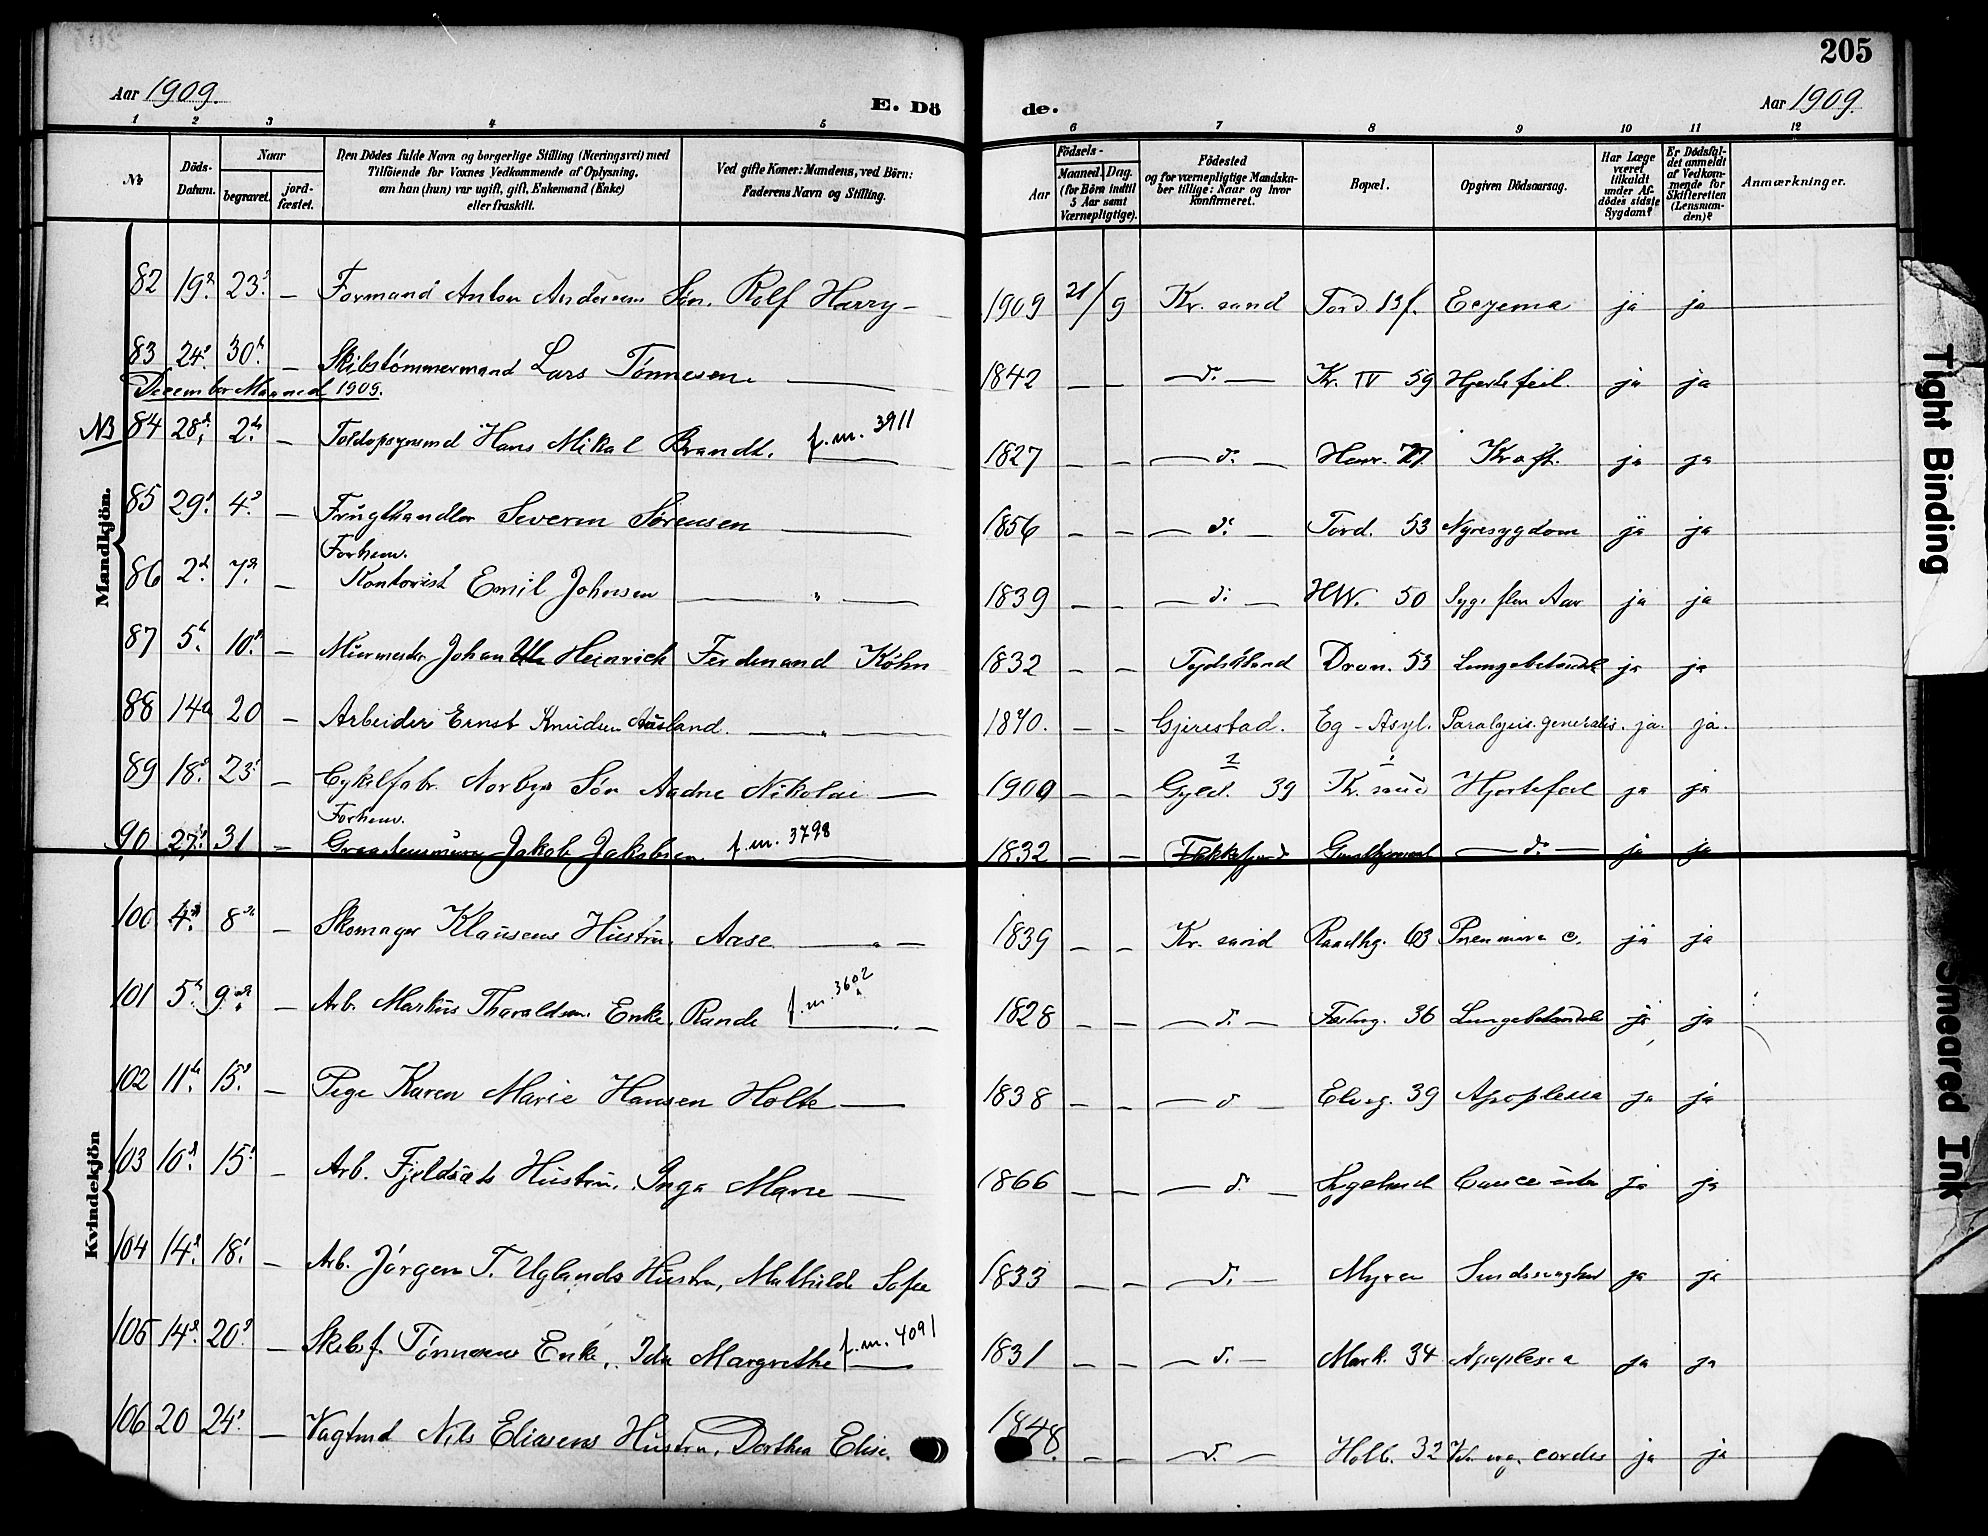 205
Aar 1909.
E. Dö
de.
Aar 1909.
1 2 3 4 5 6 7 8 9 10 11 12
No
Döds-Datum.
Naar
begravet.
jord-fæstet.
Den Dödes fulde Navn og borgerlige Stilling (Næringsvei) med
Tilföiende for Voxnes Vedkommende af Oplysning,
om han (hun) var ugift, gift, Enkemand (Enke)
eller fraskilt.
Ved gifte Koner: Mandens, ved Börn:
Faderens Navn og Stilling.
Födsels-
Aar
Maaned. Dag.
(for Börn indtil
5 Aar samt
Værnepligtige).
Födested
og for værnepligtige Mandska-
ber tillige: Naar og hvor
konfirmeret.
Bopæl.
Opgiven Dödsaarsag.
Har Læge
været
tilkaldt
under Af-
dödes sidste
Sygdom?
Er Dödsfal-
det anmeldt
af Vedkom-
mende for
Skifteretten
(Lensman-
den)?
Anmærkninger.
Mandkjön.
82 19. 23. — Formand Anton Andersens Søn, Rolf Harry — 1909 21/9 Kr.sand Tord. 13 f. Eczema ja ja
83 24. 30. — Skibstømmermand Lars Tønnesen — 1842 — — — d. — Kr. IV 59 Hjertefeil. ja ja
December Maaned 1909.
NB 84 28. 2. — Toldopsynsmd Hans Mikal Brandt. f.m. 3911 1827 — — — d. — Henr. 27 Kræft. ja ja
85 29. 4. — Frugthandler Severin Sørensen — 1856 — — — d. — Tord. 53 Nyresygdom ja ja
Forhenv.
86 2. 7. — Kontorist Emil Johnsen — " — 1839 — — — d. — HW. 50 Syg i flere Aar ja ja
87 5. 10. — Murmester Johan Heinrich Ferdinand Köhn 1832 — — Tydskland Dron. 53 Lungebetændelse ja ja
88 14 20 — Arbeider Ernst Knudsen Aasland. — " — 1870. — — Gjerestad. Eg-Asyl. Paralysis generalis. ja. ja.
89 18. 23. — Cykelfabr. Norbys Søn Aadne Nikolai — 1900 — — Gyld. 39 Kr.sand Hjertefeil ja ja
Forhenv.
90 27. 31 — Jakob Jakobsen f.m. 3798 1832 — — Flekkefjord — d. — ja ja
Kvindekjön
100 4. 8 — Skomager Klausens Hustru, Aase — " — 1839 — — Kr.sand Raadhg. 63 Pneumonia c. ja ja
101 5. 9. — Arb. Markus Tharaldsens Enke, Rande f.m. 3602 1828 — — — d. — Festng. 36 Lungebetændelse ja ja
102 11. 15. — Pige Karen Marie Hansen Holte — 1838 — — — d — Elveg. 39 Apoplexia ja ja
103 10. 15. — Arb. Fjeldsaas Hustru, Inga Marie — 1866 — — — d. — Sygehuset Cancer uteri ja ja
104 14. 18. — Arb. Jørgen T. Uglands Hustru, Mathilde Sofie 1833 — — — d. Myren ja ja
105 14. 20. — Skibsf. Tønnesens Enke, Ida Margrethe f.m. 4091 1831 — — — d. — Mark. 34 Apoplexia ja ja
106 20 24. — Vagtmd Nils Eliasens Hustru, Dorthea Elise. 1848. — — — d. — Holb. 32 cordis ja ja
Tight Binding
Smeared Ink